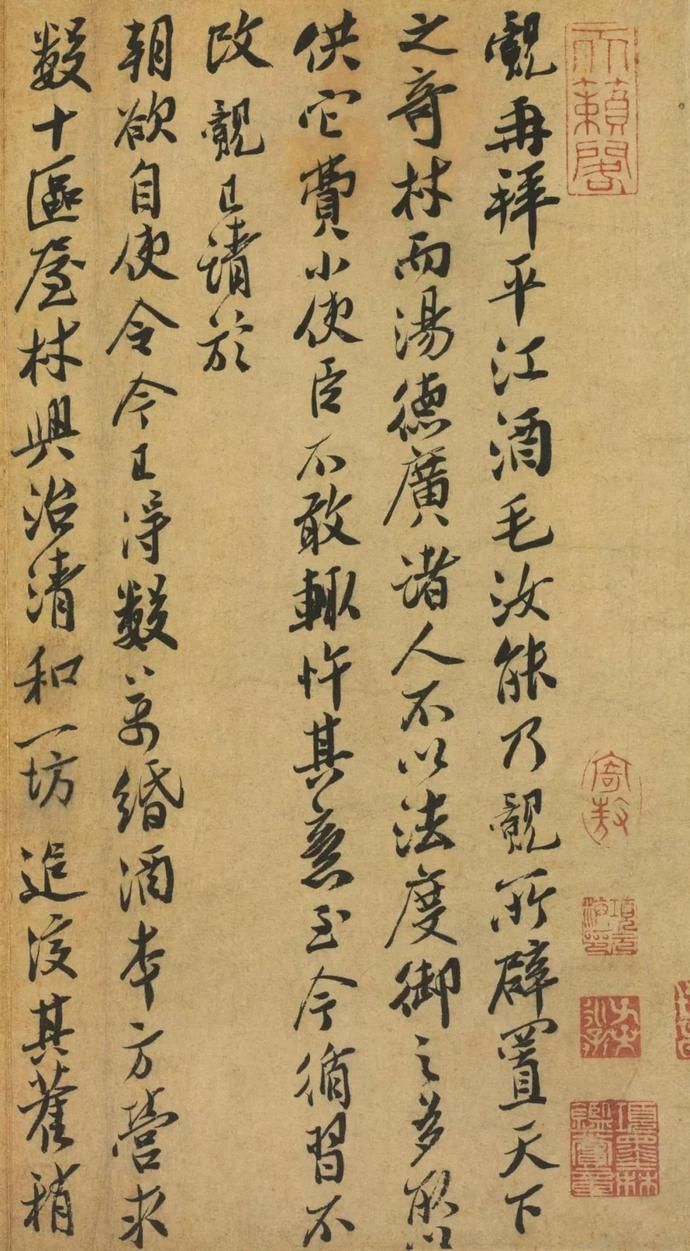 天籟閣
覿再拜平江酒毛汝能乃覿所辟置天下
之奇材而湯德廣諸人不以法度御之多取以
供它費小使臣不敢輒忤其意至今循習不
改覿已請於
朝欲自使令今已得數萬緡酒本方營求
數十區屋材興治清和一坊追復其舊稍
寄敖
項墨林鑑賞章